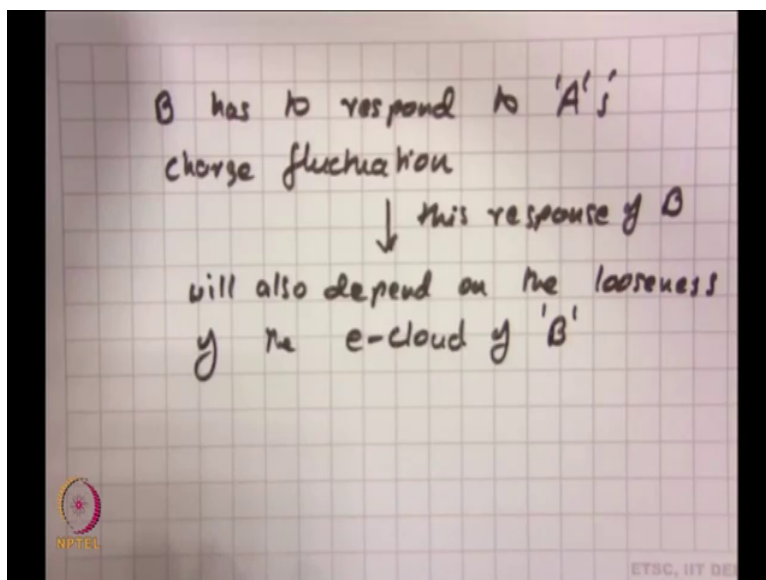 B has to respond to 'A's'
charge fluctuation
↓ this response of B
will also depend on the looseness
of the e-cloud of 'B'
NPTEL
ETSC, IIT DE